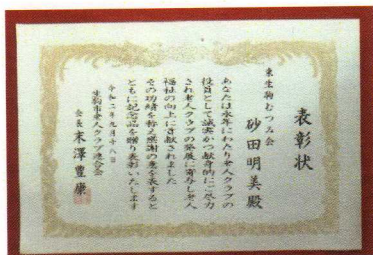 表彰状
東生駒むつみ会
砂田明美殿
あなたは永年にわたり老人クラブの
役員として誠実かつ献身的にご尽力
され老人クラブの発展に寄与し老人
福祉の向上に貢献されました
その功績を称え感謝の意を表すると
ともに記念品を贈り表彰いたします
令和二年九月十八日
生駒市老人クラブ連合会
会長 末澤豊康